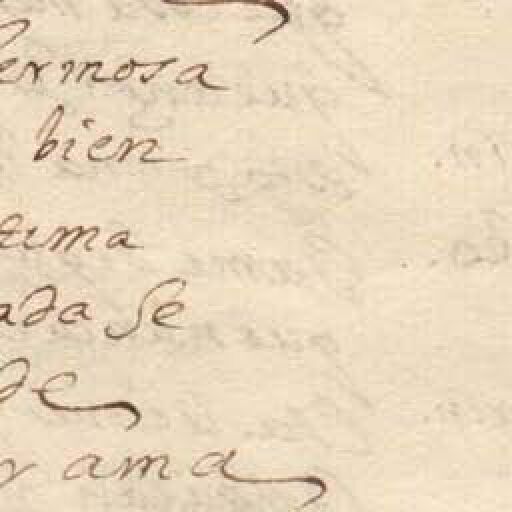 ermosa
bien
tima
ada se
de
r ama